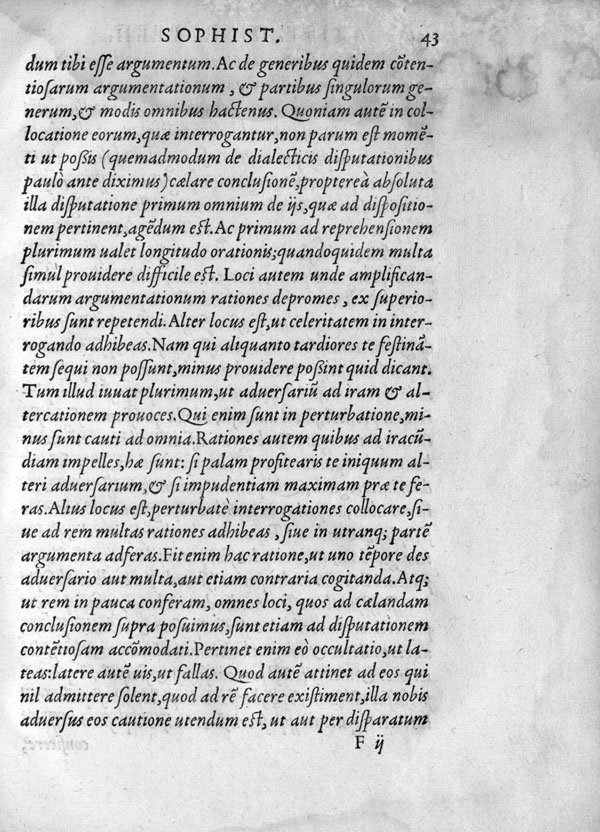 SOPHIST. 43
dum tibi esse argumentum. Ac de generibus quidem cõten-
tiosarum argumentationum, & partibus singulorum ge-
nerum, & modis omnibus hactenus. Quoniam autẽ in col-
locatione eorum, quæ interrogantur, non parum est momẽ-
ti ut possis (quemadmodum de dialecticis disputationibus
paulò ante diximus) cælare conclusionẽ, propterea absoluta
illa disputatione primum omnium de ijs, quæ ad dispositio-
nem pertinent, agẽdum est. Ac primum ad reprehensionem
plurimum ualet longitudo orationis; quandoquidem multa
simul prouidere difficile est. Loci autem unde amplifican-
darum argumentationum rationes depromes, ex superio-
ribus sunt repetendi. Alter locus est, ut celeritatem in inter-
rogando adhibeas. Nam qui aliquanto tardiores te festinã-
tem sequi non possunt, minus prouidere possint quid dicant.
Tum illud iuuat plurimum, ut aduersariũ ad iram & al-
tercationem prouoces. Qui enim sunt in perturbatione, mi-
nus sunt cauti ad omnia. Rationes autem quibus ad iracũ-
diam impelles, hæ sunt: si palam profitearis te iniquum al-
teri aduersarium, & si impudentiam maximam præ te fe-
ras. Alius locus est, perturbatè interrogationes collocare, si-
ue ad rem multas rationes adhibeas, siue in utranq; partẽ
argumenta adferas. Fit enim hac ratione, ut uno tẽpore des
aduersario aut multa, aut etiam contraria cogitanda. Atq;
ut rem in pauca conferam, omnes loci, quos ad cælandam
conclusionem supra posuimus, sunt etiam ad disputationem
contẽtiosam accõmodati. Pertinet enim eò occultatio, ut la-
teas: latere autẽ uis, ut fallas. Quod autẽ attinet ad eos qui
nil admittere solent, quod ad rẽ facere existiment, illa nobis
aduersus eos cautione utendum est, ut aut per disparatum
F ij